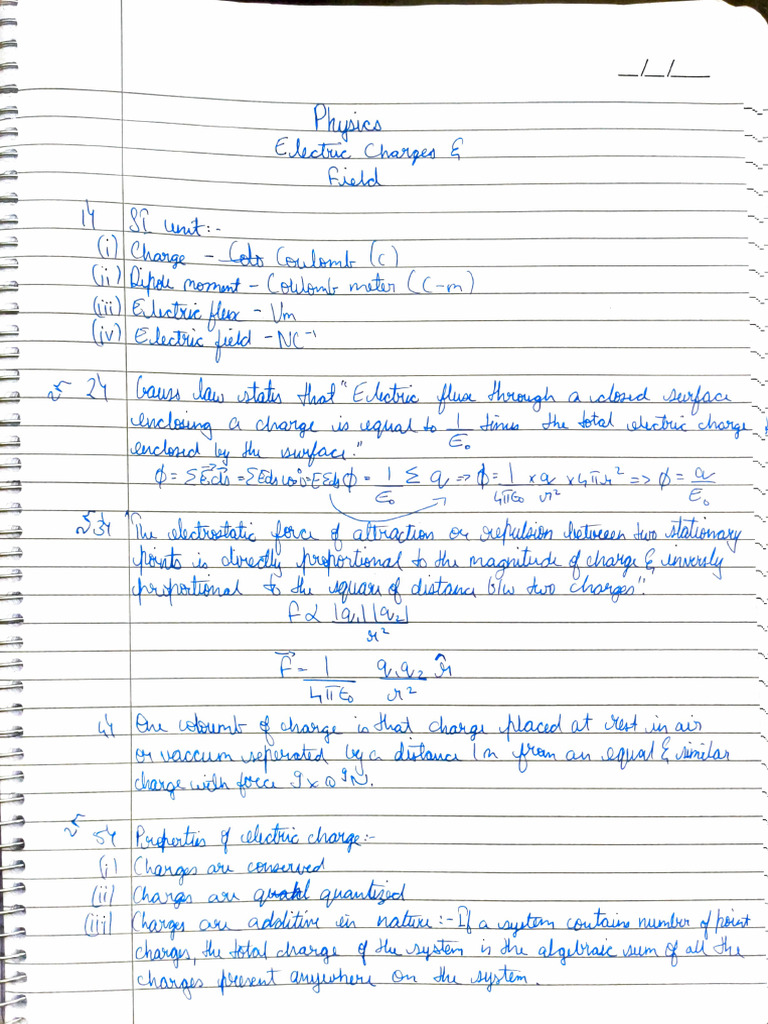 _/_/___
Physics
Electric Charges &
Field
1) SI unit:-
(i) Charge - Coulomb (C)
(ii) Dipole moment - Coulomb meter (C-m)
(iii) Electric flux - Vm
(iv) Electric field - NC⁻¹
2) Gauss law states that "Electric flux through a closed surface
enclosing a charge is equal to 1/ε₀ times the total electric charge
enclosed by the surface."
ϕ = ΣE⃗.ds⃗ = ΣEds cos0° = EΣds ϕ = 1/ε₀ Σ q => ϕ = 1/4πε₀ × q/r² × 4πr² => ϕ = q/ε₀
3) "The electrostatic force of attraction or repulsion between two stationary
points is directly proportional to the magnitude of charge & inversly
proportional to the square of distance b/w two charges".
F ∝ |q₁||q₂|/r²
F⃗ = 1/4πε₀ q₁q₂/r² r̂
4) One coloumb of charge is that charge placed at rest in air
or vaccum seperated by a distance 1m from an equal & similar
charge with force 9×10⁹N.
5) Properties of electric charge:-
(i) Charges are conserved
(ii) Charges are quantized
(iii) Charges are additive in nature:- If a system contains number of point
charges, the total charge of the system is the algebraic sum of all the
charges present anywhere on the system.